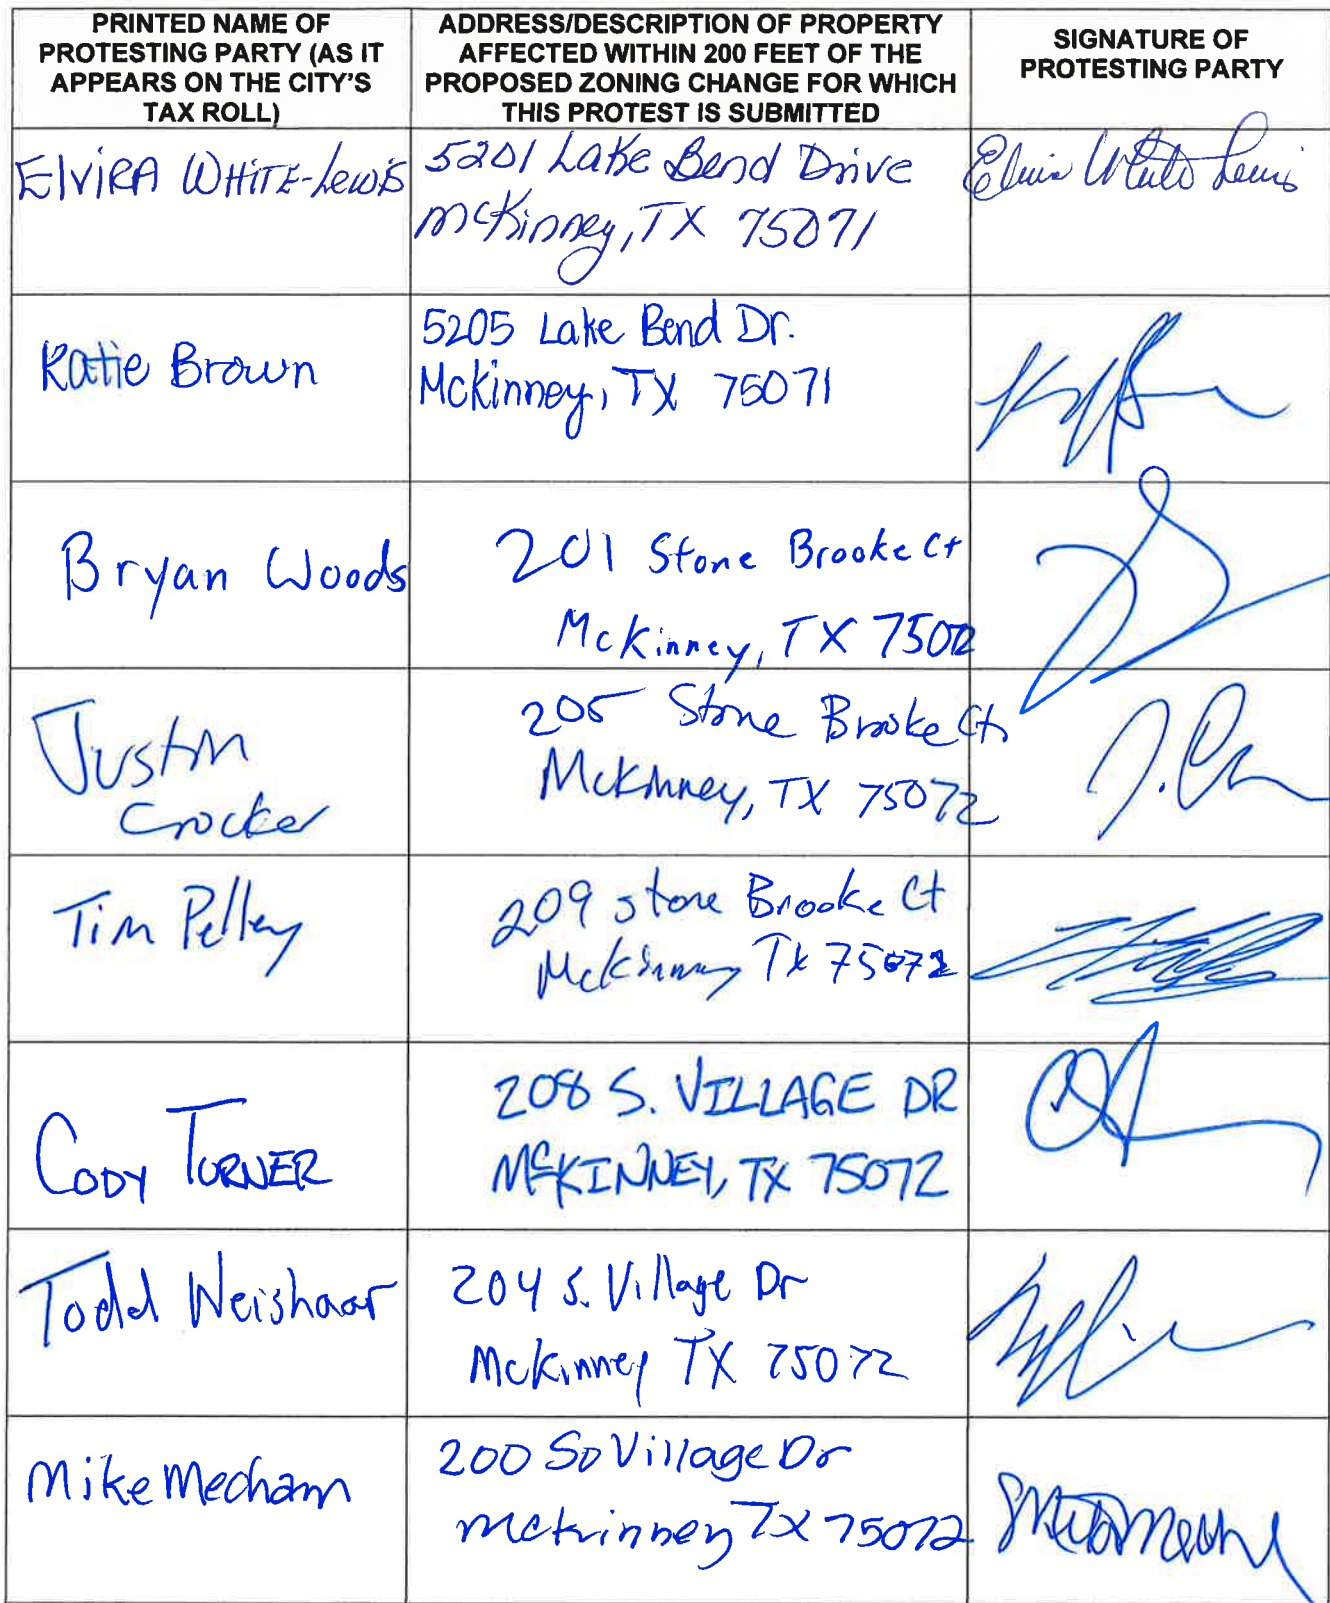 PRINTED NAME OF
PROTESTING PARTY (AS IT
APPEARS ON THE CITY'S
TAX ROLL)
ADDRESS/DESCRIPTION OF PROPERTY
AFFECTED WITHIN 200 FEET OF THE
PROPOSED ZONING CHANGE FOR WHICH
THIS PROTEST IS SUBMITTED
SIGNATURE OF
PROTESTING PARTY
ElViRA WHiTE-Lewis
5201 Lake Bend Drive
McKinney, TX 75071
Katie Brown
5205 Lake Bend Dr.
McKinney, TX 75071
Bryan Woods
201 Stone Brooke Ct
McKinney, TX 75072
Justin
Crocker
205 Stone Brooke Ct
McKinney, TX 75072
Tim Pelley
209 stone Brooke Ct
McKinney Tx 75072
CODY TURNER
208 S. VILLAGE DR
McKINNEY, TX 75072
Todd Weishaar
204 S. Village Dr
McKinney TX 75072
Mike Mecham
200 So Village Dr
McKinney TX 75072